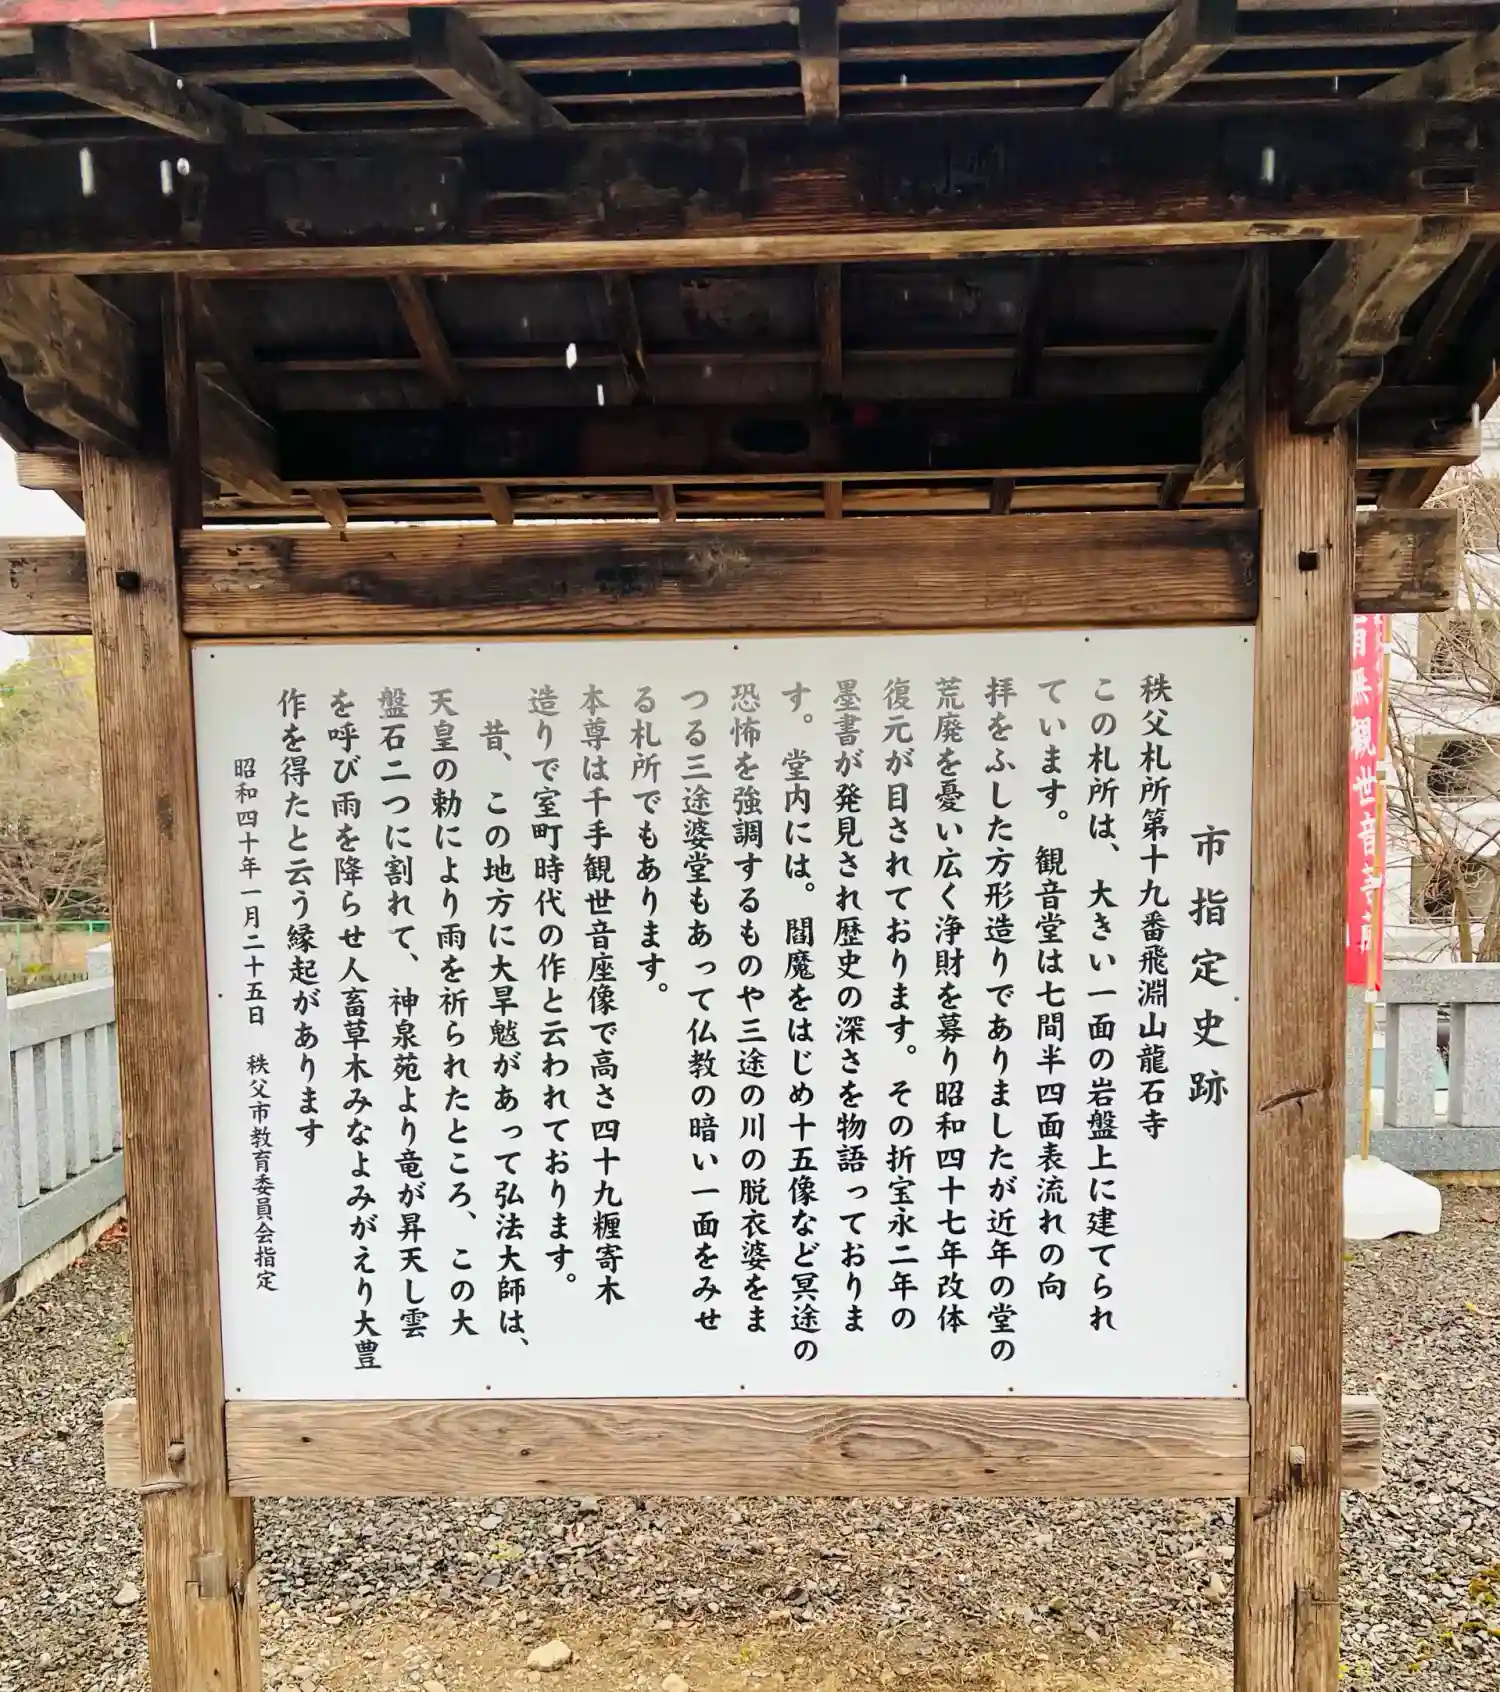 市指定史跡
秩父札所第十九番飛淵山龍石寺
この札所は、大きい一面の岩盤上に建てられ
ています。観音堂は七間半四面表流れの向
拝をふした方形造りでありましたが近年の堂の
荒廃を憂い広く浄財を募り昭和四十七年改体
復元が目されております。その折宝永二年の
墨書が発見され歴史の深さを物語っておりま
す。堂内には。閻魔をはじめ十五像など冥途の
恐怖を強調するものや三途の川の脱衣婆をま
つる三途婆堂もあって仏教の暗い一面をみせ
る札所でもあります。
本尊は千手観世音座像で高さ四十九糎寄木
造りで室町時代の作と云われております。
昔、この地方に大旱魃があって弘法大師は、
天皇の勅により雨を祈られたところ、この大
盤石二つに割れて、神泉苑より竜が昇天し雲
を呼び雨を降らせ人畜草木みなよみがえり大豊
作を得たと云う縁起があります
昭和四十年一月二十五日 秩父市教育委員会指定
無観世音菩